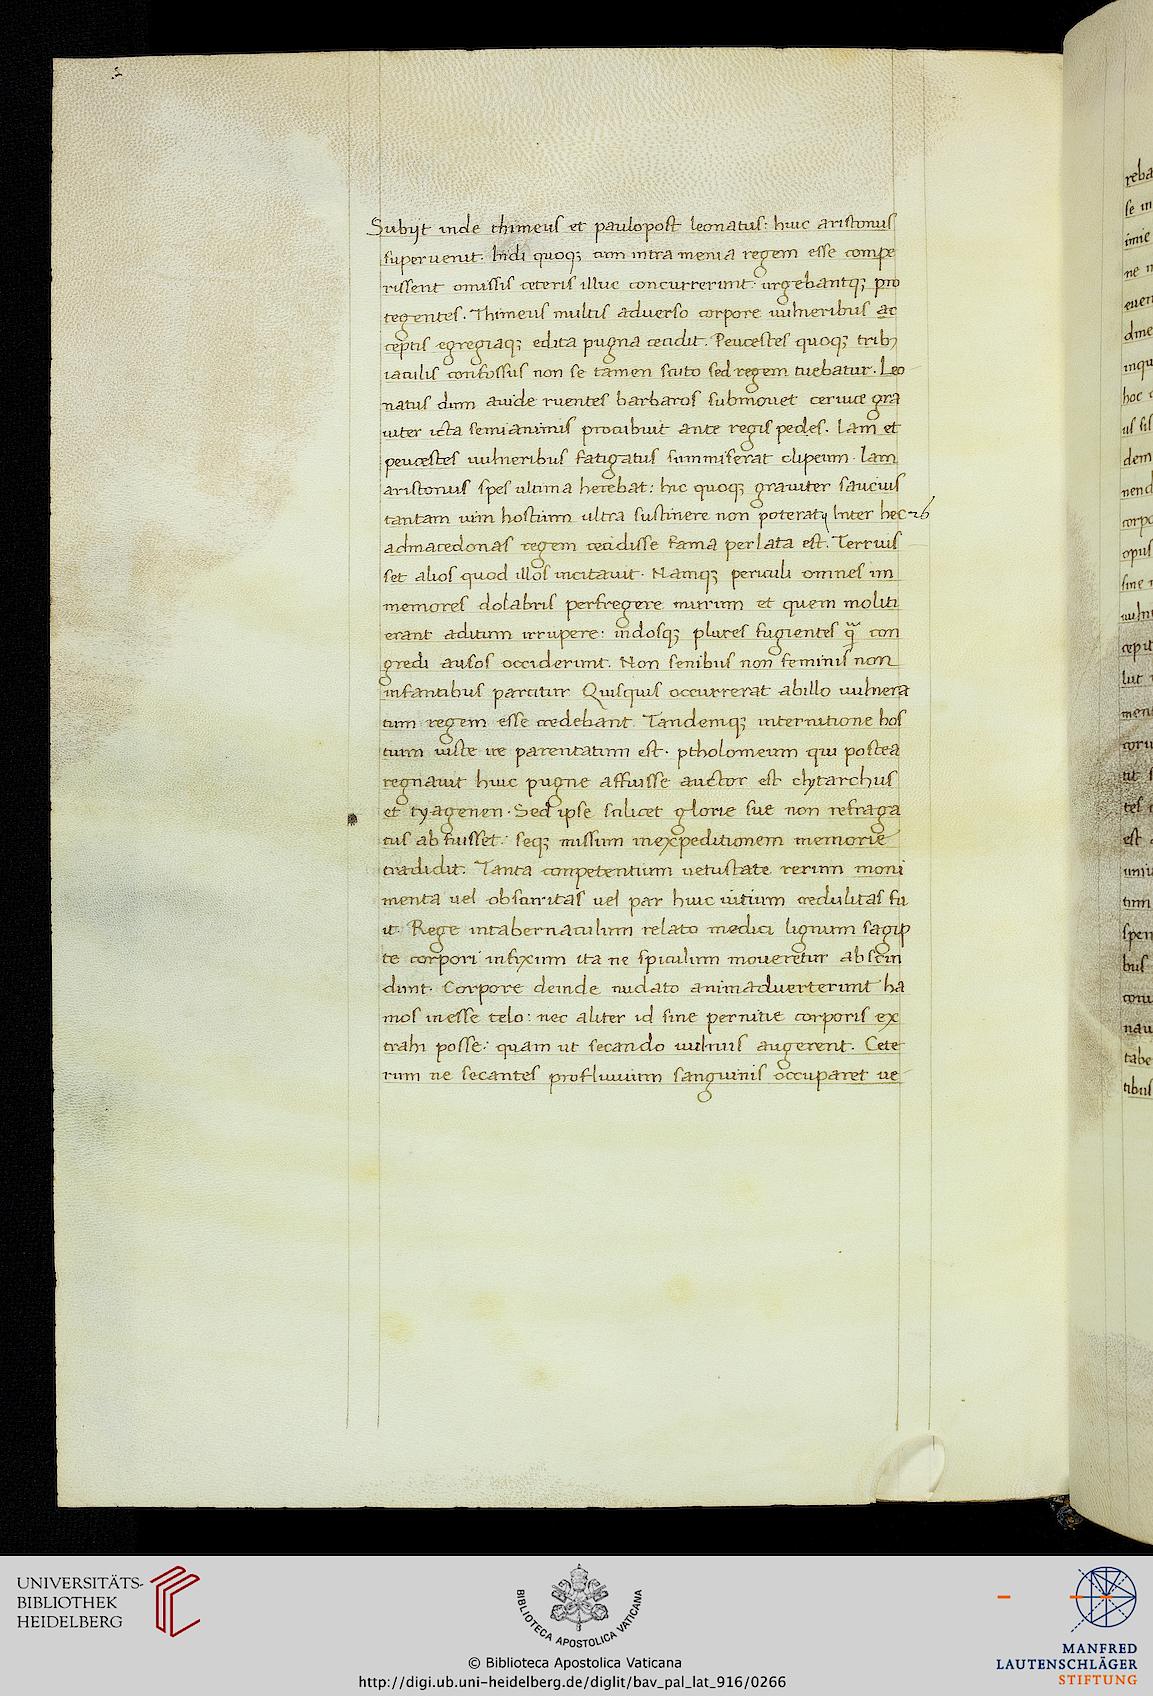 Subijt inde thimeus et paulopost leonatus: huic aristonus
superuenit. Indi quoqꝫ cum intra menia regem esse compe
rissent omissis ceteris illuc concurrerunt: urgebantqꝫ pro
tegentes. Thimeus multis aduerso corpore uulneribus ac
ceptis egregiaqꝫ edita pugna cecidit. Peucestes quoqꝫ tribꝫ
iaculis confossus non se tamen scuto sed regem tuebatur. Leo
natus dum auide ruentes barbaros submouet ceruice gra
uiter icta semianimis procubuit ante regis pedes. Iam et
peucestes uulneribus fatigatus summiserat clipeum. Iam
aristonus spes ultima herebat: hic quoqꝫ grauiter saucius
tantam uim hostium ultra sustinere non poterat Inter hec
admacedonas regem cecidisse fama perlata est. Terruis
set alios quod illos incitauit. Namqꝫ periculi omnes im
memores dolabris perfregere murum et quem moliti
erant aditum irrupere: indosqꝫ plures fugientes qᷓ con
gredi ausos occiderunt. Non senibus non feminis non
infantibus parcitur Quisquis occurrerat abillo uulnera
tum regem esse credebant. Tandemqꝫ internitione hos
tium iuste ire parentatum est. ptholomeum qui postea
regnauit huic pugne affuisse auctor est clytarchus
et tyagenen. Sed ipse scilicet glorie sue non refraga
tus ab fuisset: seqꝫ missum inexpeditionem memorie
tradidit. Tanta competentium uetustate rerum moni
menta uel obscuritas uel par huic uitium credulitas fu
it. Rege intabernaculum relato medici lignum sagip
te corpori infixum ita ne spiculum moueretur abscin
dunt. Corpore deinde nudato animaduerterunt ha
mos inesse telo: nec aliter id sine pernitie corporis ex
trahi posse: quam ut secando uulnus augerent. Cete
rum ne secantes profluuium sanguinis occuparet ue
UNIVERSITÄTS-
BIBLIOTHEK
HEIDELBERG
BIBLIOTECA APOSTOLICA VATICANA
© Biblioteca Apostolica Vaticana
http://digi.ub.uni-heidelberg.de/diglit/bav_pal_lat_916/0266
MANFRED
LAUTENSCHLÄGER
STIFTUNG